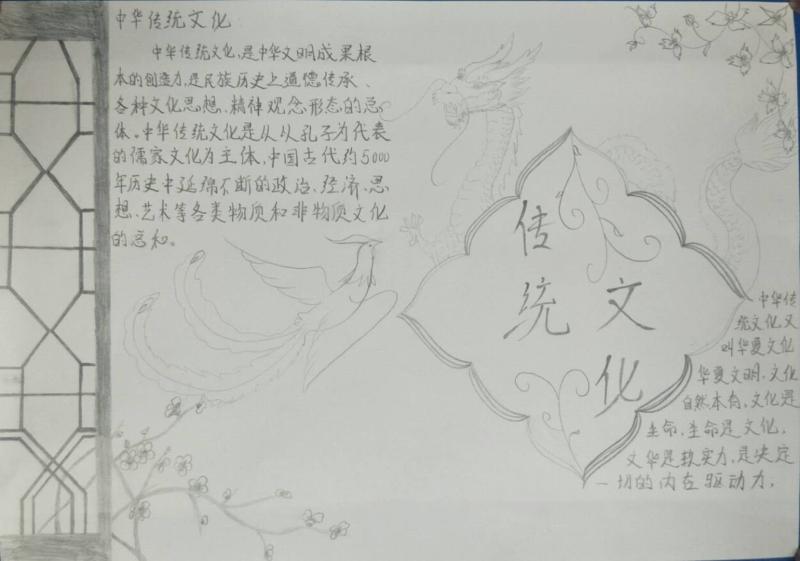 中华传统文化
中华传统文化,是中华文明成果根
本的创造力,是民族历史上道德传承、
各种文化思想、精神观念形态的总
体。中华传统文化是从从孔子为代表
的儒家文化为主体,中国古代约5000
年历史中延绵不断的政治、经济、思
想、艺术等各类物质和非物质文化
的总和。
传统
文化
中华传
统文化又
叫华夏文化
华夏文明,文化
自然本有,文化是
生命,生命是文化,
文华是软实力,是决定
一切的内在驱动力,